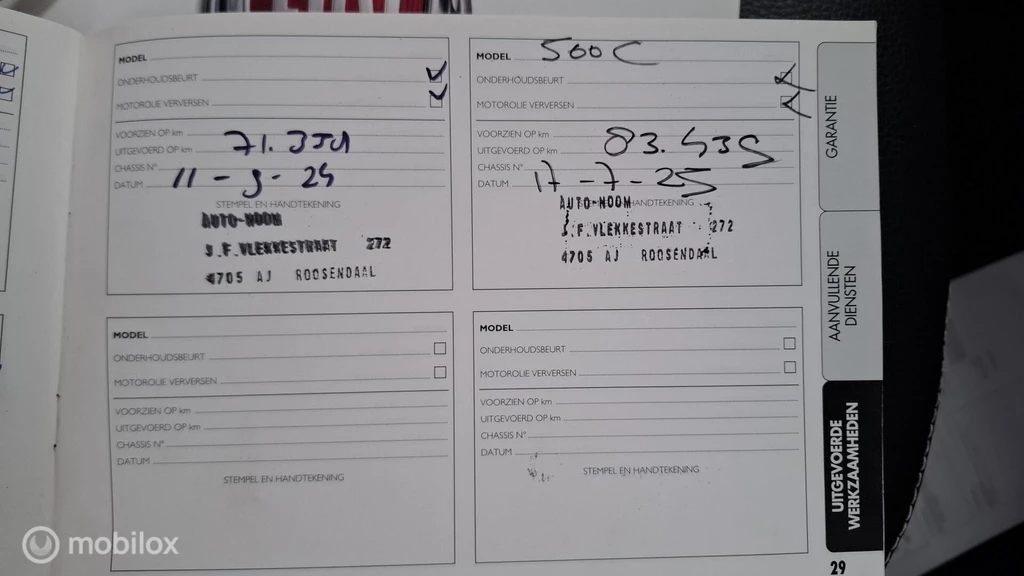 MODEL
ONDERHOUDSBEURT
MOTOROLIE VERVERSEN
VOORZIEN OP km
UITGEVOERD OP km
CHASSIS N°
DATUM 11-9-24
STEMPEL EN HANDTEKENING
AUTO-NOOM
J.F.VLEKKESTRAAT 272
4705 AJ ROOSENDAAL
MODEL 500C
ONDERHOUDSBEURT
MOTOROLIE VERVERSEN
VOORZIEN OP km
UITGEVOERD OP km
CHASSIS N°
DATUM 17-7-25
STEMPEL EN HANDTEKENING
AUTO-NOOM
J.F.VLEKKESTRAAT 272
4705 AJ ROOSENDAAL
MODEL
ONDERHOUDSBEURT
MOTOROLIE VERVERSEN
VOORZIEN OP km
UITGEVOERD OP km
CHASSIS N°
DATUM
STEMPEL EN HANDTEKENING
MODEL
ONDERHOUDSBEURT
MOTOROLIE VERVERSEN
VOORZIEN OP km
UITGEVOERD OP km
CHASSIS N°
DATUM
STEMPEL EN HANDTEKENING
GARANTIE
AANVULLENDE
DIENSTEN
UITGEVOERDE
WERKZAAMHEDEN
29
mobilox